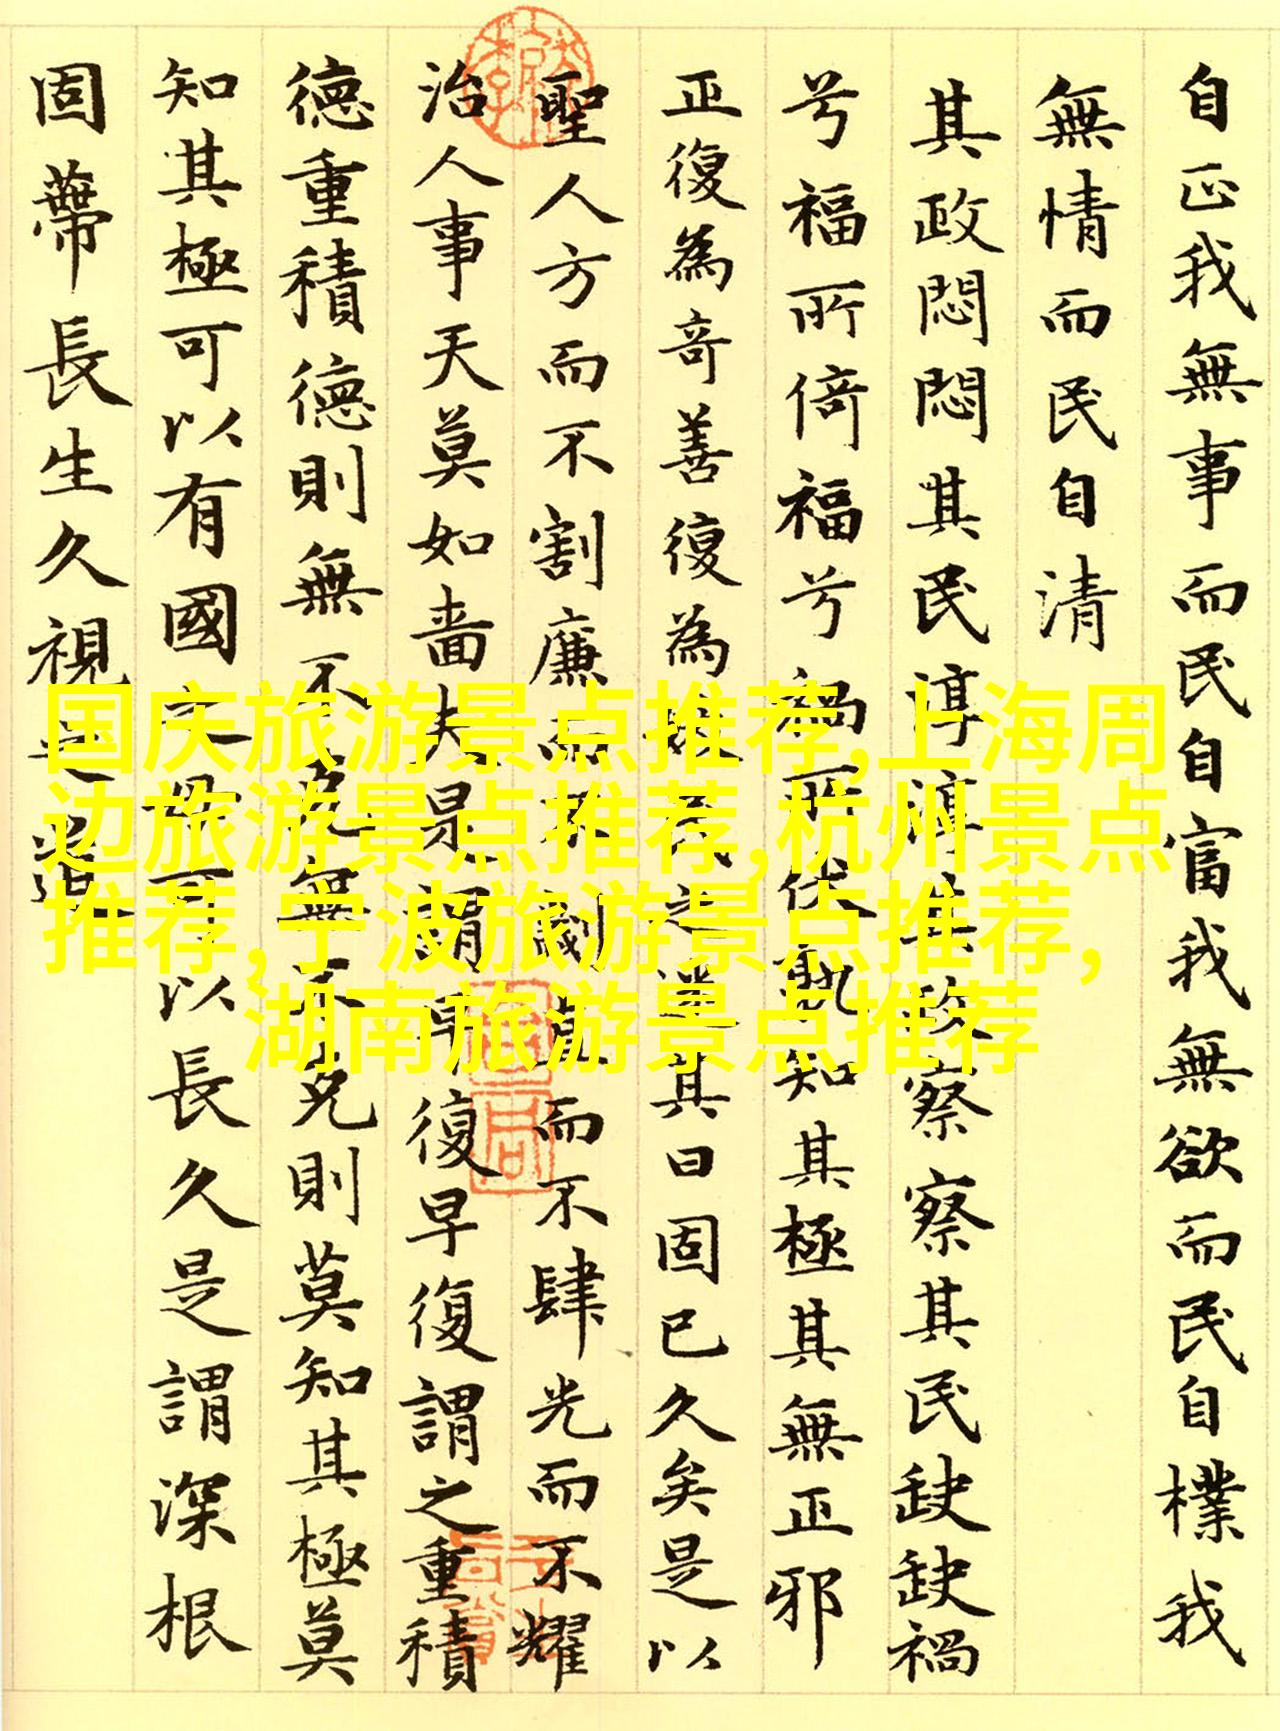 自正我無事而民自富我無欲而民自樸我
無情而民自清
其政悶悶其民淳淳其政察察其民缺缺禍
兮福所倚福兮禍所伏孰知其極其無正邪
正復為奇善復為妖民之迷其日固已久矣是以
聖人方而不割廉而不劌直而不肆光而不耀
治人事天莫如嗇夫是謂早復早復謂之重積
德重積德則無不克無不克則莫知其極莫
知其極可以有國之母可以長久是謂深根
固蔕長生久視之道
国庆旅游景点推荐,上海周
边旅游景点推荐,杭州景点
推荐,宁波旅游景点推荐,
湖南旅游景点推荐